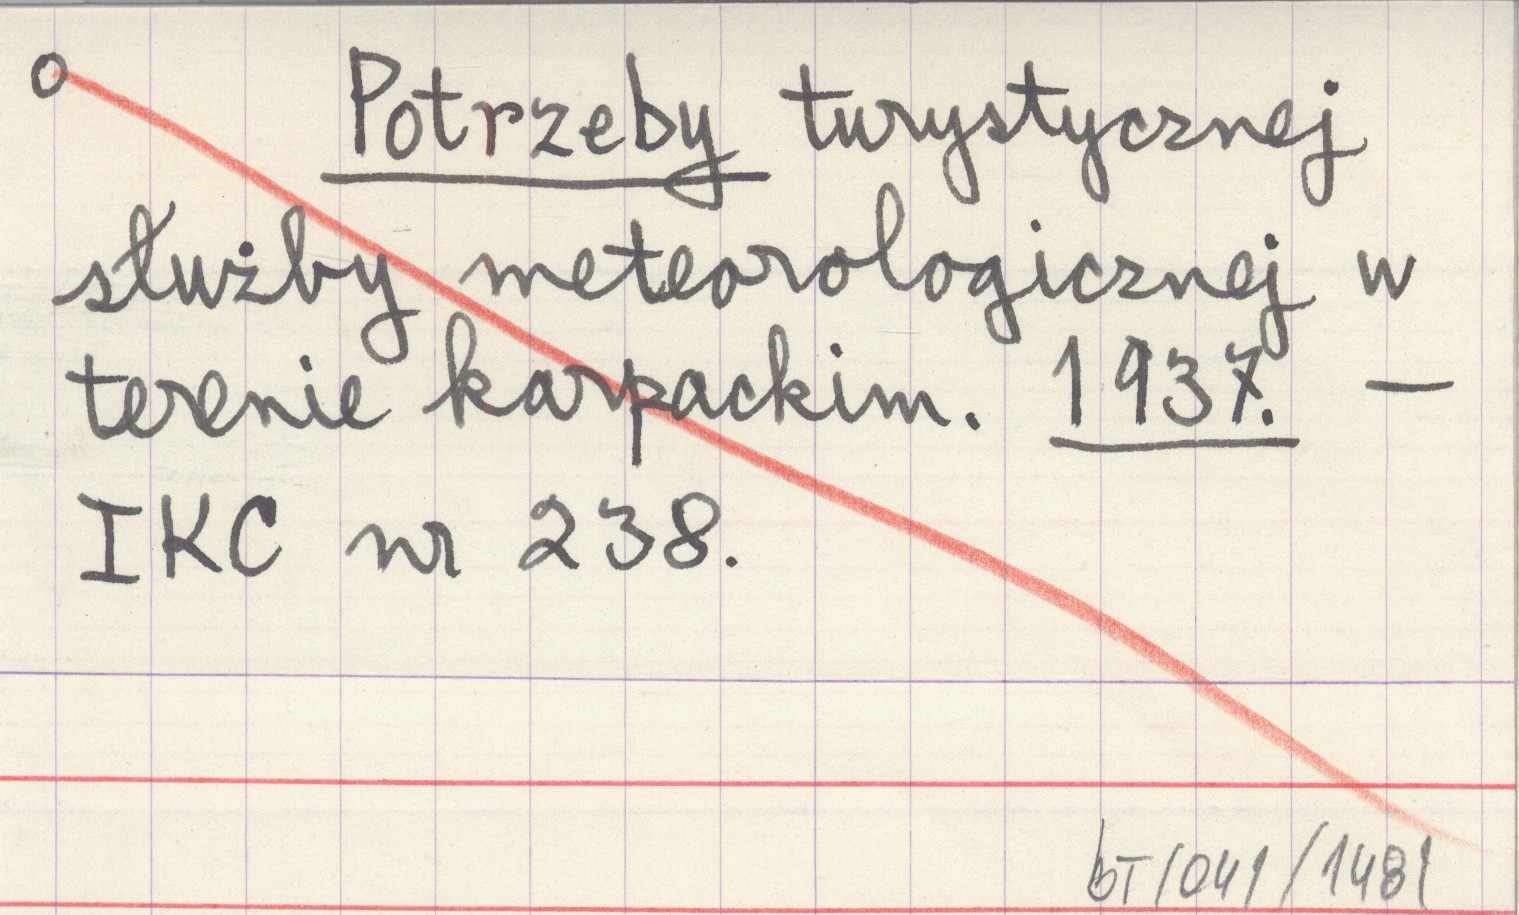 o
Potrzeby turystycznej
służby meteorologicznej w
terenie karpackim. 1937. —
IKC nr 238.
bT/041/1481